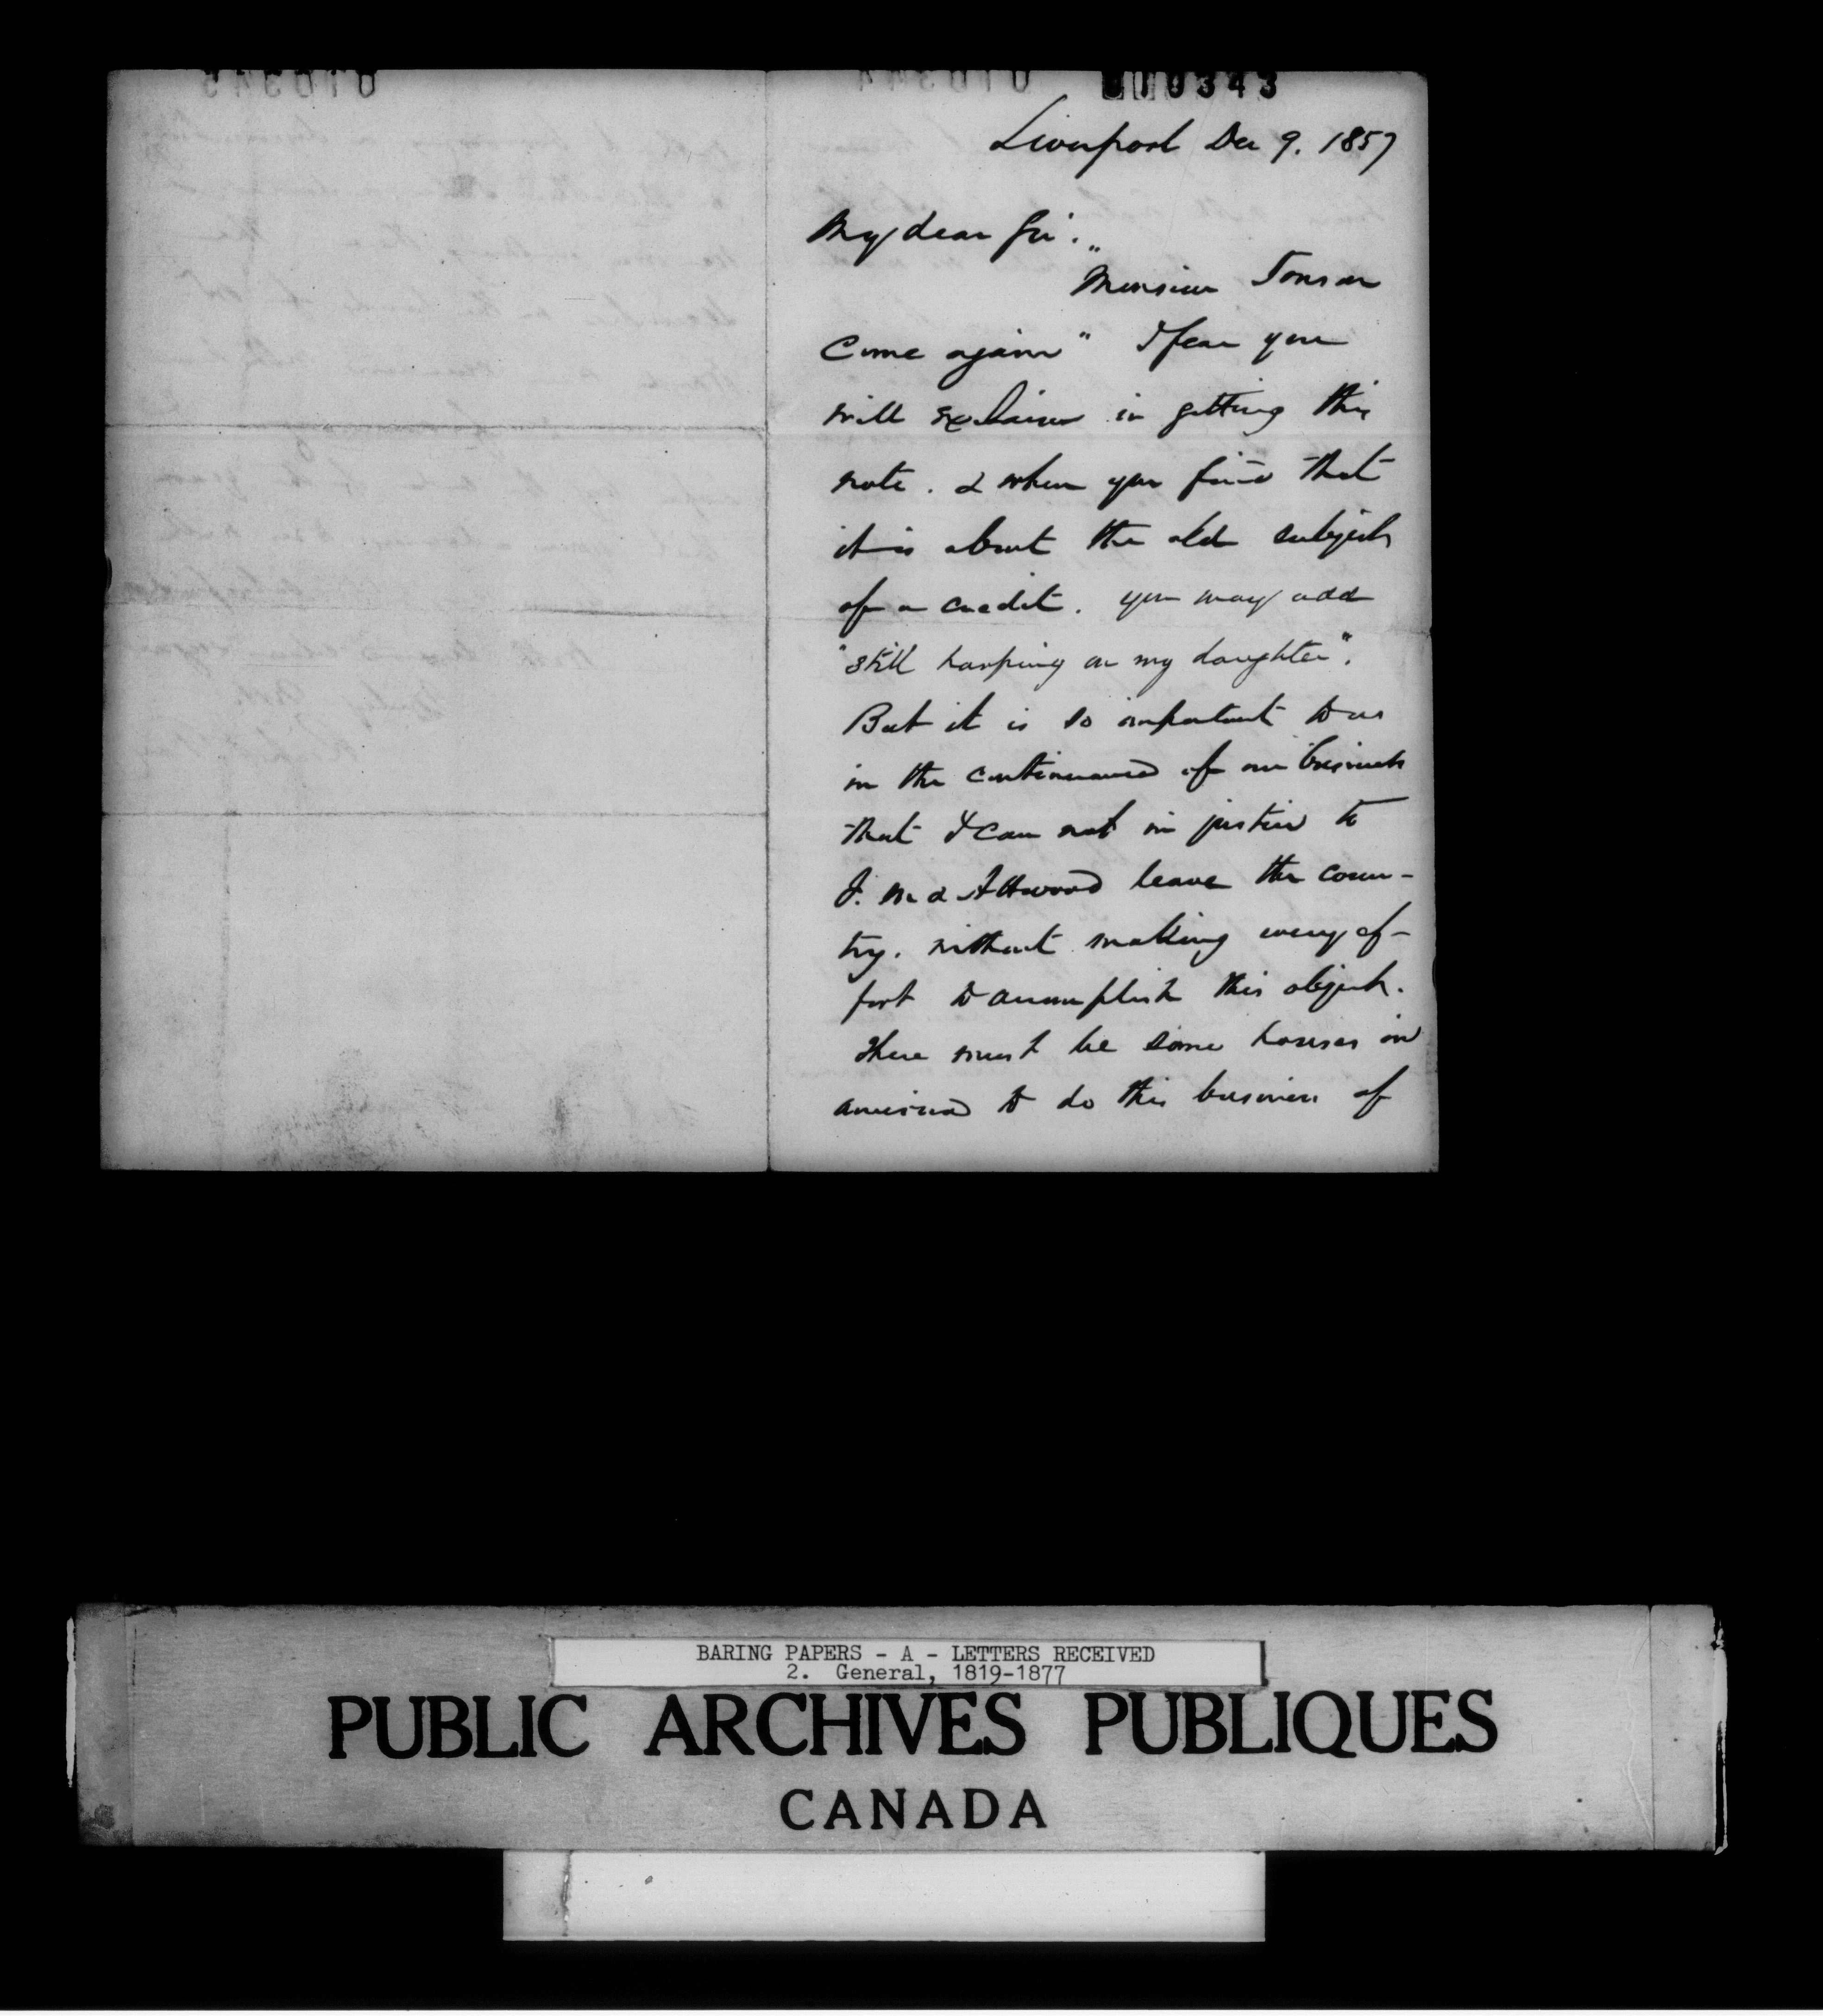 010343
Liverpool Dec 9. 1857
My dear Sir.
"Monsieur Tonson
come again" I fear you
will exclaim in getting this
note. & when you find that
it is about the old subject
of a credit. you may add
"still harping on my daughter".
But it is so important to us
in the continuance of our business
that I can not in justice to
J. M & Attwood leave the coun-
try. without making every ef-
fort to accomplish this object.
There must be some houses in
America to do this business of
BARING PAPERS - A - LETTERS RECEIVED
2. General, 1819-1877
PUBLIC ARCHIVES PUBLIQUES
CANADA